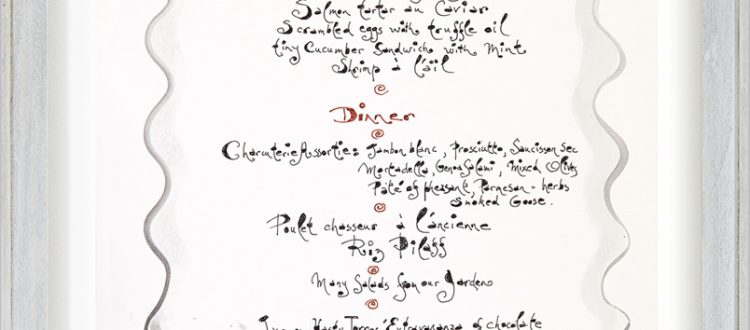 Salmon tartar au Caviar
Scrambled eggs with truffle oil
tiny Cucumber Sandwichs with Mint
Shrimp à l'ail
Dinner
Charcuterie Assortie: Jambon blanc, Prosciutto, Saucisson sec
Mortadella, Genoa Salami, Mixed Olives
Pâté of pheasant, Parmesan - herbs
Smoked Goose.
Poulet chasseur à l'ancienne
Riz Pilaff
Many Salads from our Garden
Torres' Extravaganza of chocolate